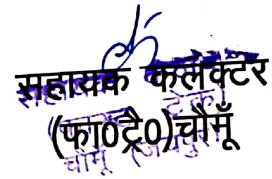 सहायक कलेक्टर
(फा0ट्रै0)चौमूँ